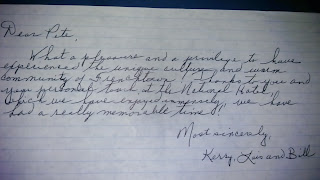 Dear Pete,
What a pleasure and a privilege to have
experienced the unique culture and warm
community of Frenchtown! Thanks to you and
your personal touch at the National Hotel,
which we have enjoyed immensely, we have
had a really memorable time!!
Most sincerely,
Kerry, and Bill